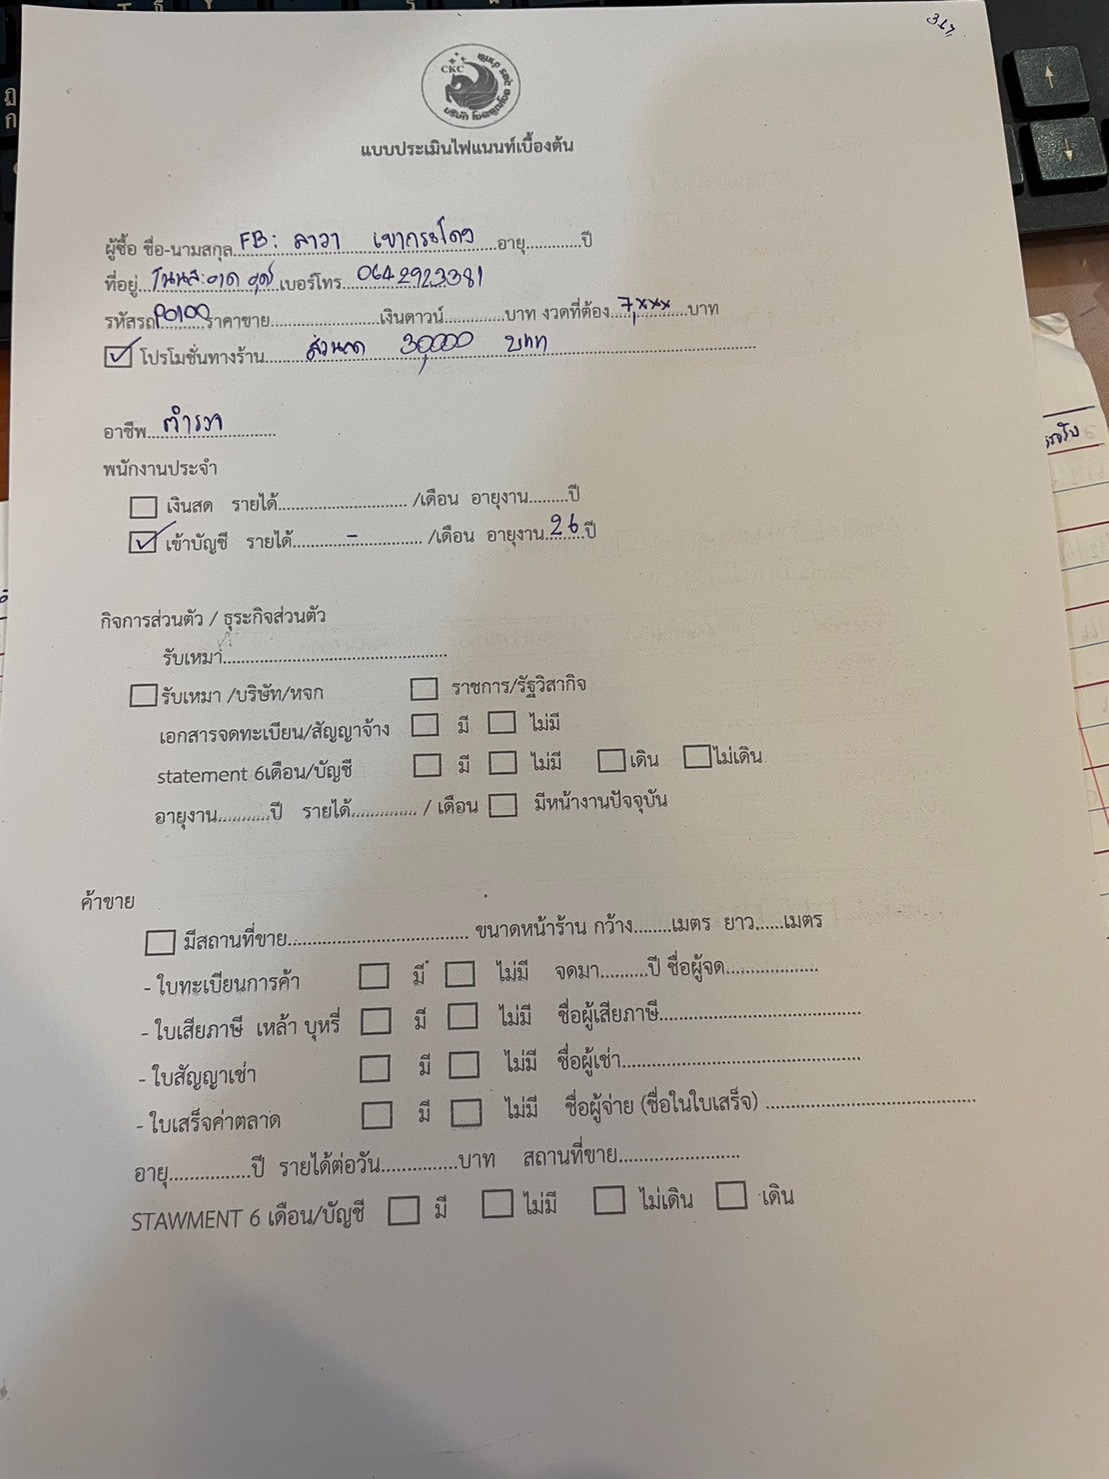 CKC
แบบประเมินไฟแนนท์เบื้องต้น
ผู้ซื้อ ชื่อ-นามสกุล FB: ลาวา เขากระโดง อายุ............ปี
ที่อยู่ โนนสะอาด อุดร เบอร์โทร 0642923381
รหัสรถ P0100 ราคาขาย........................เงินดาวน์.............บาท งวดที่ต้อง 7,xxx บาท
โปรโมชั่นทางร้าน ส่วนลด 30,000 บาท
อาชีพ ตำรวจ
พนักงานประจำ
เงินสด รายได้............................. /เดือน อายุงาน.........ปี
เข้าบัญชี รายได้ - /เดือน อายุงาน 26 ปี
กิจการส่วนตัว / ธุระกิจส่วนตัว
รับเหมา..................................................
รับเหมา /บริษัท/หจก ราชการ/รัฐวิสากิจ
เอกสารจดทะเบียน/สัญญาจ้าง มี ไม่มี
statement 6เดือน/บัญชี มี ไม่มี เดิน ไม่เดิน
อายุงาน...........ปี รายได้.............. / เดือน มีหน้างานปัจจุบัน
ค้าขาย
มีสถานที่ขาย....................................... ขนาดหน้าร้าน กว้าง........เมตร ยาว......เมตร
- ใบทะเบียนการค้า มี ไม่มี จดมา..........ปี ชื่อผู้จด...................
- ใบเสียภาษี เหล้า บุหรี่ มี ไม่มี ชื่อผู้เสียภาษี..........................................
- ใบสัญญาเช่า มี ไม่มี ชื่อผู้เช่า..................................................
- ใบเสร็จค่าตลาด มี ไม่มี ชื่อผู้จ่าย (ชื่อในใบเสร็จ) ...........................................
อายุ................ปี รายได้ต่อวัน...............บาท สถานที่ขาย.........................
STAWMENT 6 เดือน/บัญชี มี ไม่มี ไม่เดิน เดิน